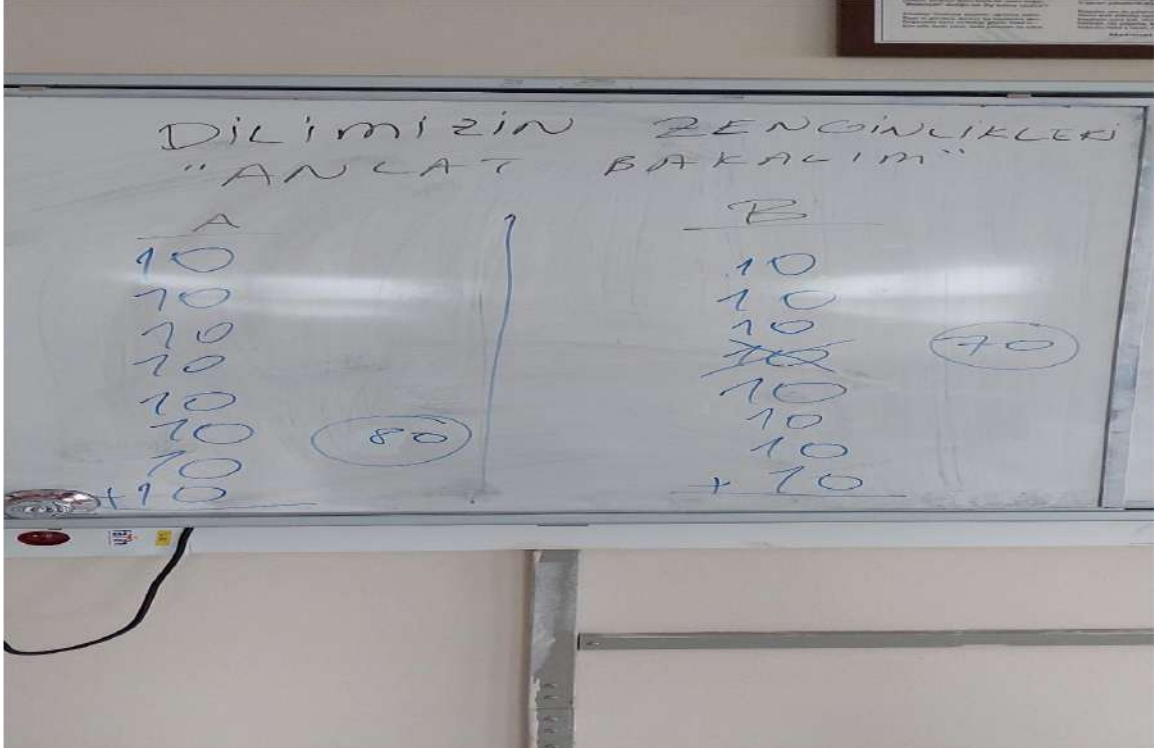 DİLİMİZİN ZENGİNLİKLERİ
"ANLAT BAKALIM"
A
10
10
10
10
10
10
10
+10
80
B
10
10
10
10
10
10
10
+10
70